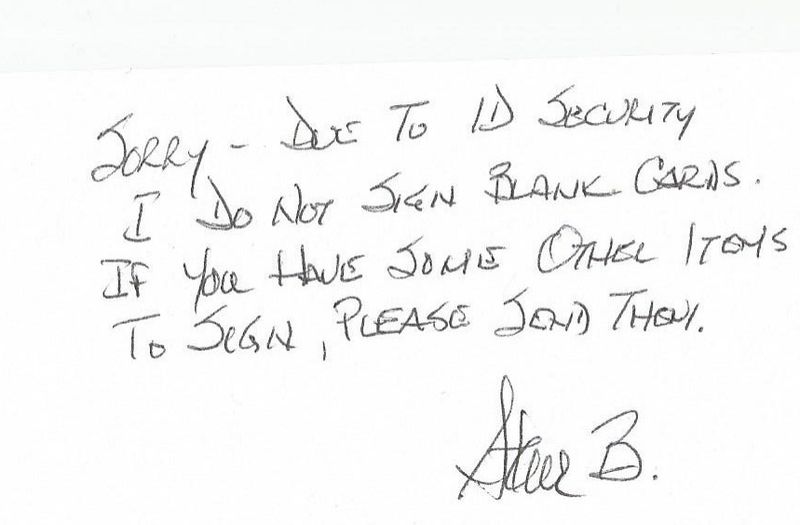 SORRY - DUE TO ID SECURITY
I DO NOT SIGN BLANK CARDS.
IF YOU HAVE SOME OTHER ITEMS
TO SIGN, PLEASE SEND THEM.
Steve B.